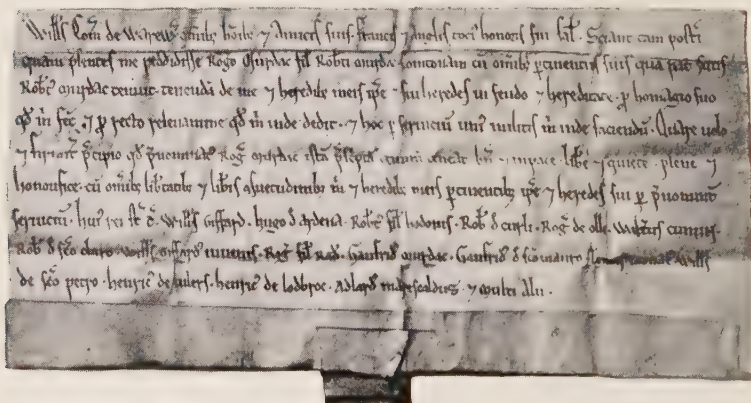 Willś Com̄ de Warewic̄ om̄ibȝ ho̅ibȝ ⁊ Amicis suis Francis ⁊ Anglis toci' honoris sui saƚ. Sciant tam posteri
quam p̄sentes me reddidisse Rogo Murdac fiƚ Rob̄ti murdac Comtonam cū om̄ibȝ p̄tinentiis suis quā
Rob̄t' murdac tenuit. tenendā de me ⁊ heredibȝ meis ip̄e ⁊ sui heredes in feudo ⁊ hereditate. p̄ homagio suo
qd̄ m̄ fec̄. ⁊ p̄ recto relevamine qd̄ m̄ inde dedit. ⁊ hoc p̄ servicium uni' militis m̄ inde faciendū. Quare volo
⁊ firmit̄ p̄cipio qd̄ Rog̃ murdac teneat bn̄ ⁊ in pace libe ⁊ quiete. plene ⁊
honorifice. cū om̄ibȝ lib̄tatibȝ ⁊ lib̄is consuetudinibȝ m̄ ⁊ heredibȝ meis p̄tinentibȝ ip̄e ⁊ heredes sui p̄
serviciū. hui' rei Willś Giffard. hugo d̄ Ardena. Rob̄t' fiƚ hodonis. Rob̄ d̄ Curli. Rog̃ de
Rob̄ d̄ sc̄o claro. Willś Giffard' iuvenis. Rog̃ fiƚ Rad̄. Gaufrid' murdac. Gaufrid' d̄ Willś
de sc̄o petro. henric' de henric' de lodbroc. Adlard' ⁊ multi alii.